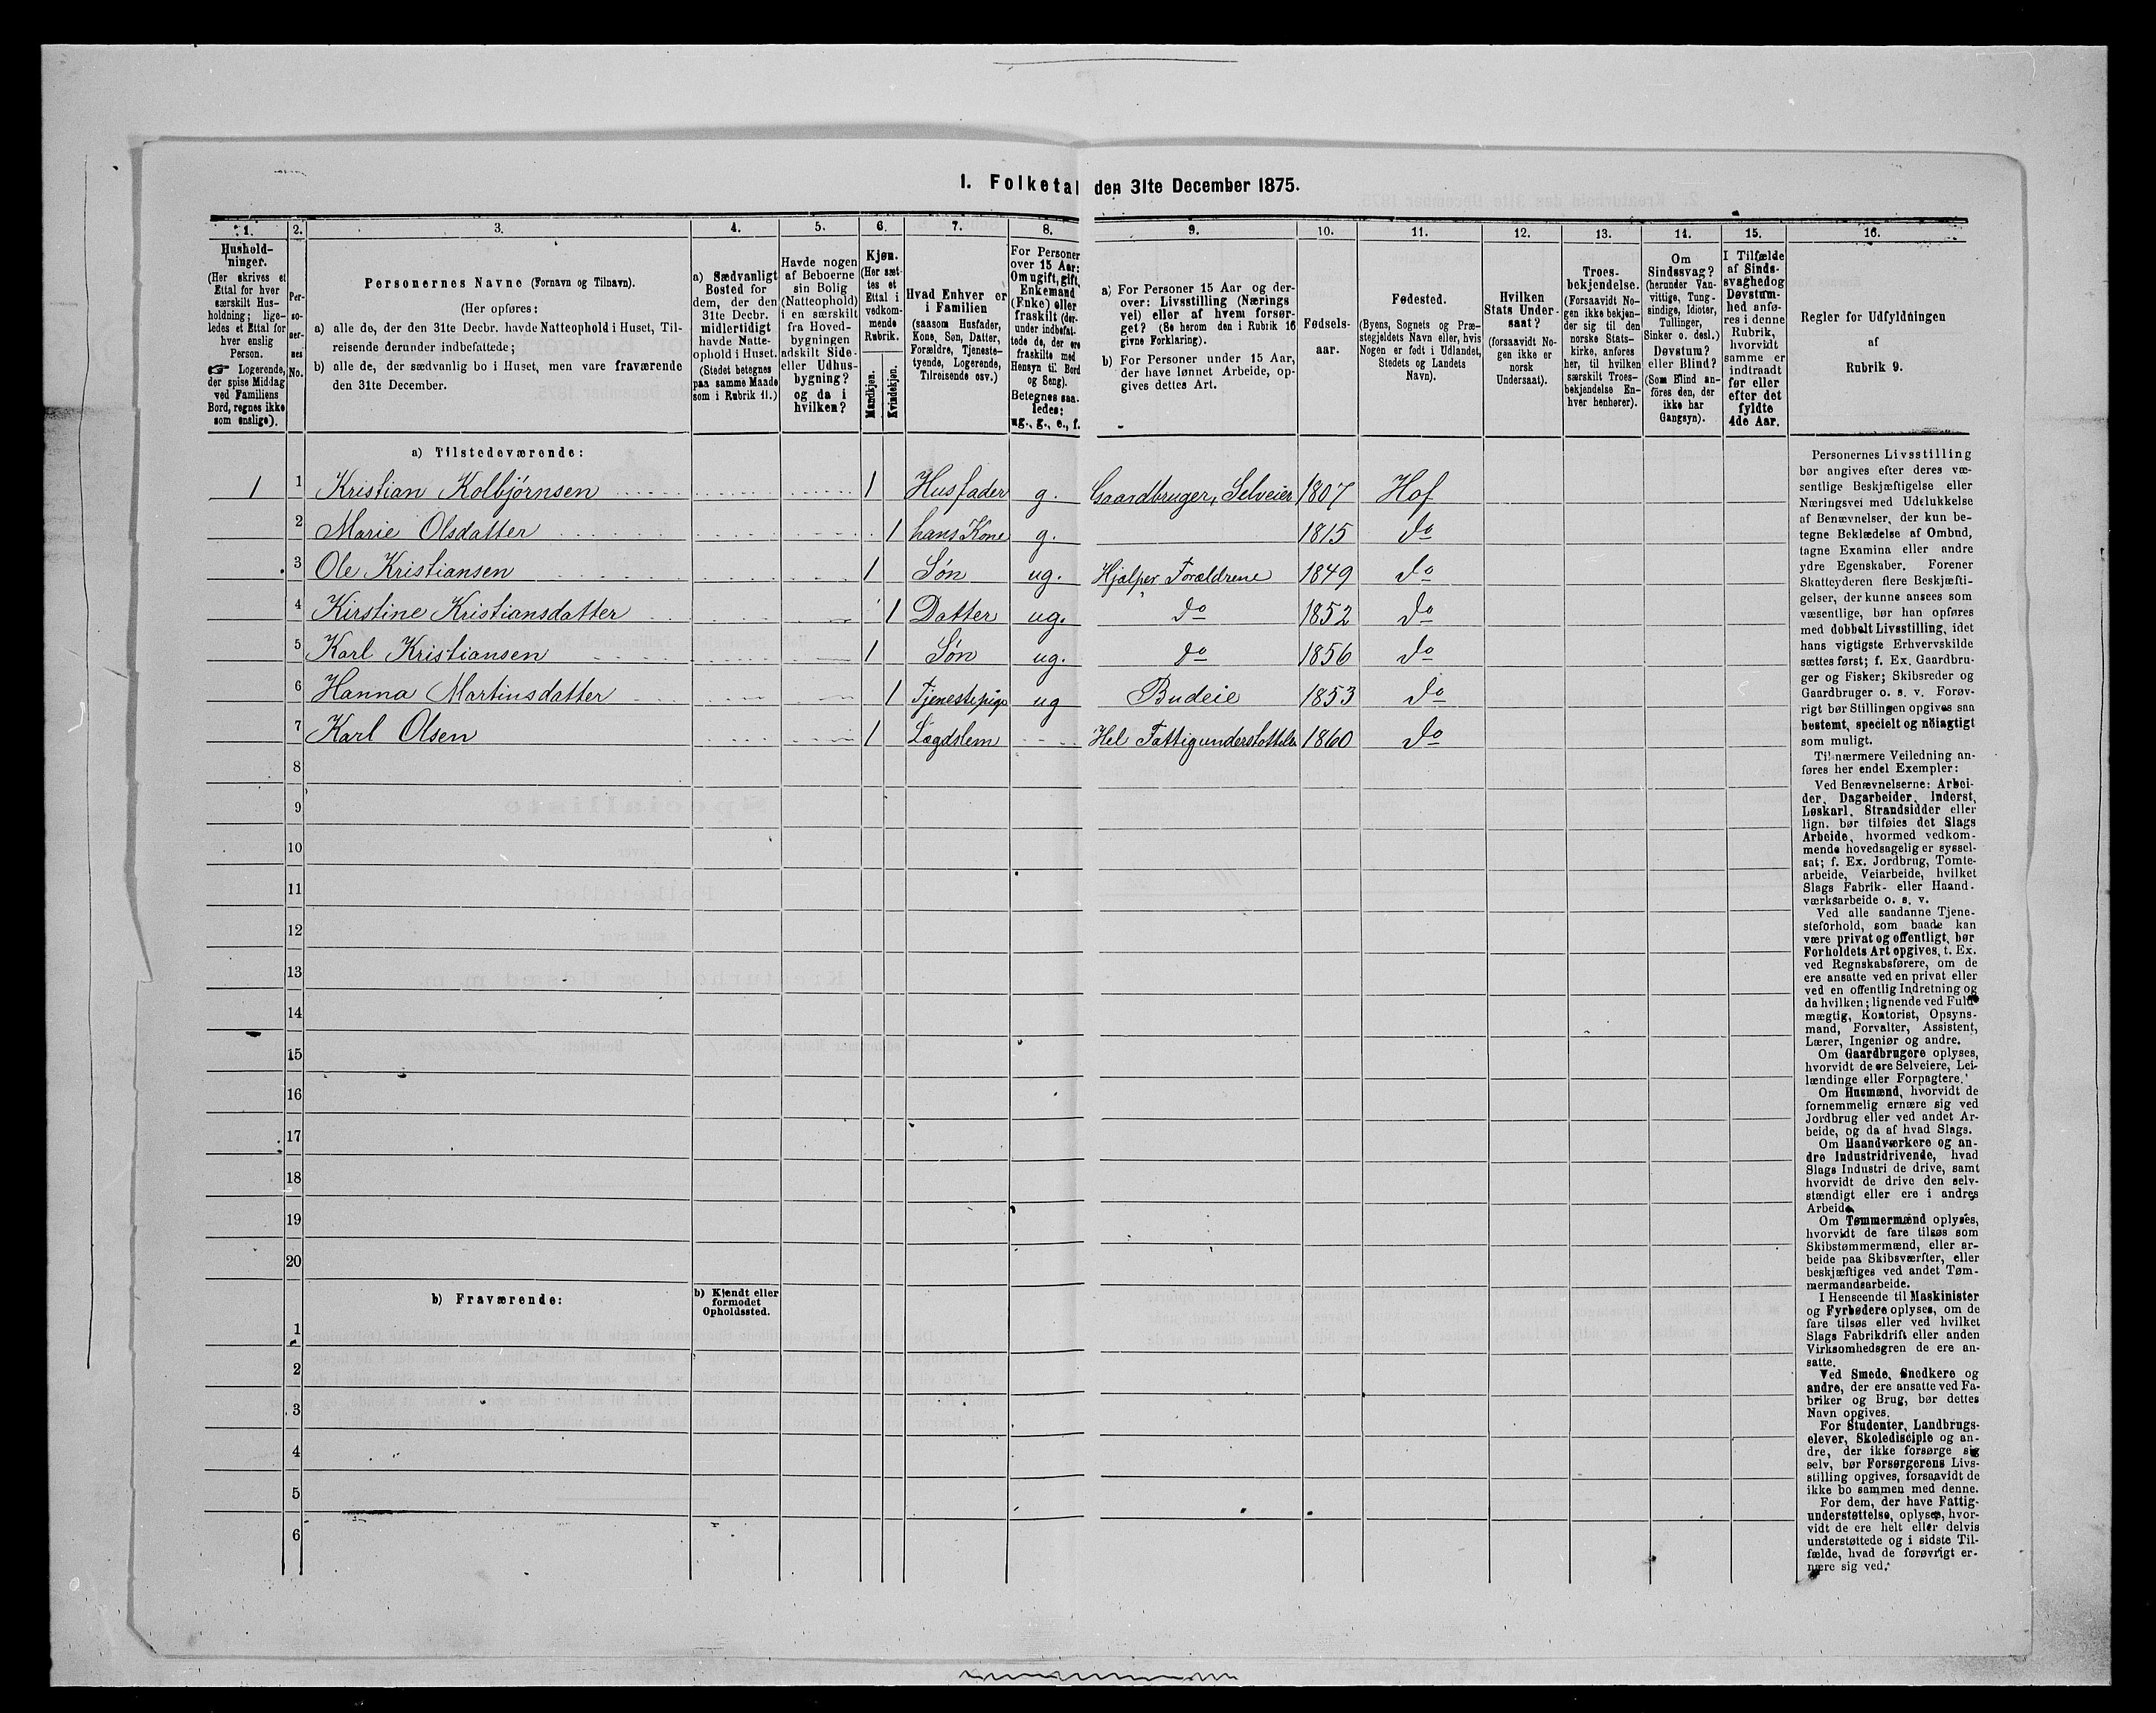 1. Folketal den 31te December 1875.
1. 2. 3. 4. 5. 6. 7. 8. 9. 10. 11. 12. 13. 14. 15. 16.
Hushold-
ninger.
(Her skrives et
Ettal for hver
særskilt Hus-
holdning; lige-
ledes et Ettal for
hver enslig
Person.
☞ Logerende,
der spise Middag
ved Familiens
Bord, regnes ikke
som enslige).
Per-
so-
ner-
nes
No.
Personernes Navne (Fornavn og Tilnavn).
(Her opføres:
a) alle de, der den 31te Decbr. havde Natteophold i Huset, Til-
reisende derunder indbefattede;
b) alle de, der sædvanlig bo i Huset, men vare fraværende
den 31te December.
a) Sædvanligt
Bosted for
dem, der den
31te Decbr.
midlertidigt
havde Natte-
ophold i Huset.
(Stedet betegnes
paa samme Maade
som i Rubrik 11.)
Havde nogen
af Beboerne
sin Bolig
(Natteophold)
i en særskilt
fra Hoved-
bygningen
adskilt Side-
eller Udhus-
bygning?
og da i
hvilken?
Kjøn.
(Her sæt-
tes et
Ettal i
vedkom-
mende
Rubrik.
Mandkjøn.
Kvindekjøn.
Hvad Enhver er
i Familien
(saasom Husfader,
Kone, Søn, Datter,
Forældre, Tjeneste-
tyende, Logerende,
Tilreisende osv.)
For Personer
over 15 Aar:
Om ugift, gift,
Enkemand
(Enke) eller
fraskilt (der-
under indbefat-
tede de, der ere
fraskilte med
Hensyn til Bord
og Seng).
Betegnes saa-
ledes:
ug., g., e., f.
a) For Personer 15 Aar og der-
over: Livsstilling (Nærings
vei) eller af hvem forsør-
get? (Se herom den i Rubrik 16
givne Forklaring).
b) For Personer under 15 Aar,
der have lønnet Arbeide, op-
gives dettes Art.
Fødsels-
aar.
Fødested.
(Byens, Sognets og Præ-
stegjeldets Navn eller, hvis
Nogen er født i Udlandet,
Stedets og Landets
Navn).
Hvilken
Stats Under-
saat?
(forsaavidt No-
gen ikke er
norsk
Undersaat).
Troes-
bekjendelse.
(Forsaavidt No-
gen ikke bekjen-
der sig til den
norske Stats-
kirke, anføres
her, til hvilken
særskilt Troes-
bekjendelse En-
hver henhører).
Om
Sindssvag?
(herunder Van-
vittige, Tung-
sindige, Idioter,
Tullinger,
Sinker o. desl.)
Døvstum?
eller Blind?
(Som Blind an-
føres den, der
ikke har
Gangsyn).
I Tilfælde
af Sinds-
svaghed og
Døvstum-
hed anfø-
res i denne
Rubrik,
hvorvidt
samme er
indtraadt
før eller
efter det
fyldte
4de Aar.
Regler for Udfyldningen
af
Rubrik 9.
a) Tilstedeværende:
1 1 Kristian Kolbjørnsen 1 Husfader g. Gaardbruger, Selveier 1807 Hof
2 Marie Olsdatter 1 hans Kone g. 1815 do
3 Ole Kristiansen 1 Søn ug. Hjælper Forældrene 1849 do
4 Kirstine Kristiansdatter 1 Datter ug. do 1852 do
5 Karl Kristiansen 1 Søn ug. do 1856 do
6 Hanna Martinsdatter 1 Tjenestepige ug Budeie 1853 do
7 Karl Olsen 1 Lægdslem Hel Fattigunderstøttelse 1860 do
8
9
10
11
12
13
14
15
16
17
18
19
20
b) Fraværende:
b) Kjendt eller
formodet
Opholdssted.
1
2
3
4
5
6
Personernes Livsstilling
bør angives efter deres væ-
sentlige Beskjæftigelse eller
Næringsvei med Udelukkelse
af Benævnelser, der kun be-
tegne Beklædelse af Ombud,
tagne Examina eller andre
ydre Egenskaber. Forener
Skatteyderen flere Beskjæfti-
gelser, der kunne ansees som
væsentlige, bør han opføres
med dobbelt Livsstilling, idet
hans vigtigste Erhvervskilde
sættes først; f. Ex. Gaardbru-
ger og Fisker; Skibsreder og
Gaardbruger o. s. v. Forøv-
rigt bør Stillingen opgives saa
bestemt, specielt og nøiagtigt
som muligt.
Til nærmere Veiledning an-
føres her endel Exempler:
Ved Benævnelserne: Arbei-
der, Dagarbeider, Inderst,
Løskarl, Strandsidder eller
lign. bør tilføies det Slags
Arbeide, hvormed vedkom-
mende hovedsagelig er syssel-
sat; f. Ex. Jordbrug, Tomte-
arbeide, Veiarbeide, hvilket
Slags Fabrik- eller Haand-
værksarbeide o. s. v.
Ved alle saadanne Tjene-
steforhold, som baade kan
være privat og offentligt, bør
Forholdets Art opgives, t. Ex.
ved Regnskabsførere, om de
ere ansatte ved en privat eller
ved en offentlig Indretning og
da hvilken; lignende ved Fuld-
mægtig, Kontorist, Opsyns-
mand, Forvalter, Assistent,
Lærer, Ingeniør og andre.
Om Gaardbrugere oplyses,
hvorvidt de ere Selveiere, Lei-
lændinge eller Forpagtere.
Om Husmænd, hvorvidt de
fornemmelig ernære sig ved
Jordbrug eller ved andet Ar-
beide, og da af hvad Slags.
Om Haandværkere og an-
dre Industridrivende, hvad
Slags Industri de drive, samt
hvorvidt de drive den selv-
stændigt eller ere i andres
Arbeide.
Om Tømmermænd oplyses,
hvorvidt de fare tilsøs som
Skibstømmermænd, eller ar-
beide paa Skibsværfter, eller
beskjæftiges ved andet Tøm-
mermandsarbeide.
I Henseende til Maskinister
og Fyrbødere oplyses, om de
fare tilsøs eller ved hvilket
Slags Fabrikdrift eller anden
Virksomhedsgren de ere an-
satte.
Ved Smede, Snedkere og
andre, der ere ansatte ved Fa-
briker og Brug, bør dettes
Navn opgives.
For Studenter, Landbrugs-
elever, Skoledisciple og an-
dre, der ikke forsørge sig
selv, bør Forsørgerens Livs-
stilling opgives, forsaavidt de
ikke bo sammen med denne.
For dem, der have Fattig-
understøttelse, oplyses, hvor-
vidt de ere helt eller delvis
understøttede og i sidste Til-
fælde, hvad de forøvrigt er-
nære sig ved.